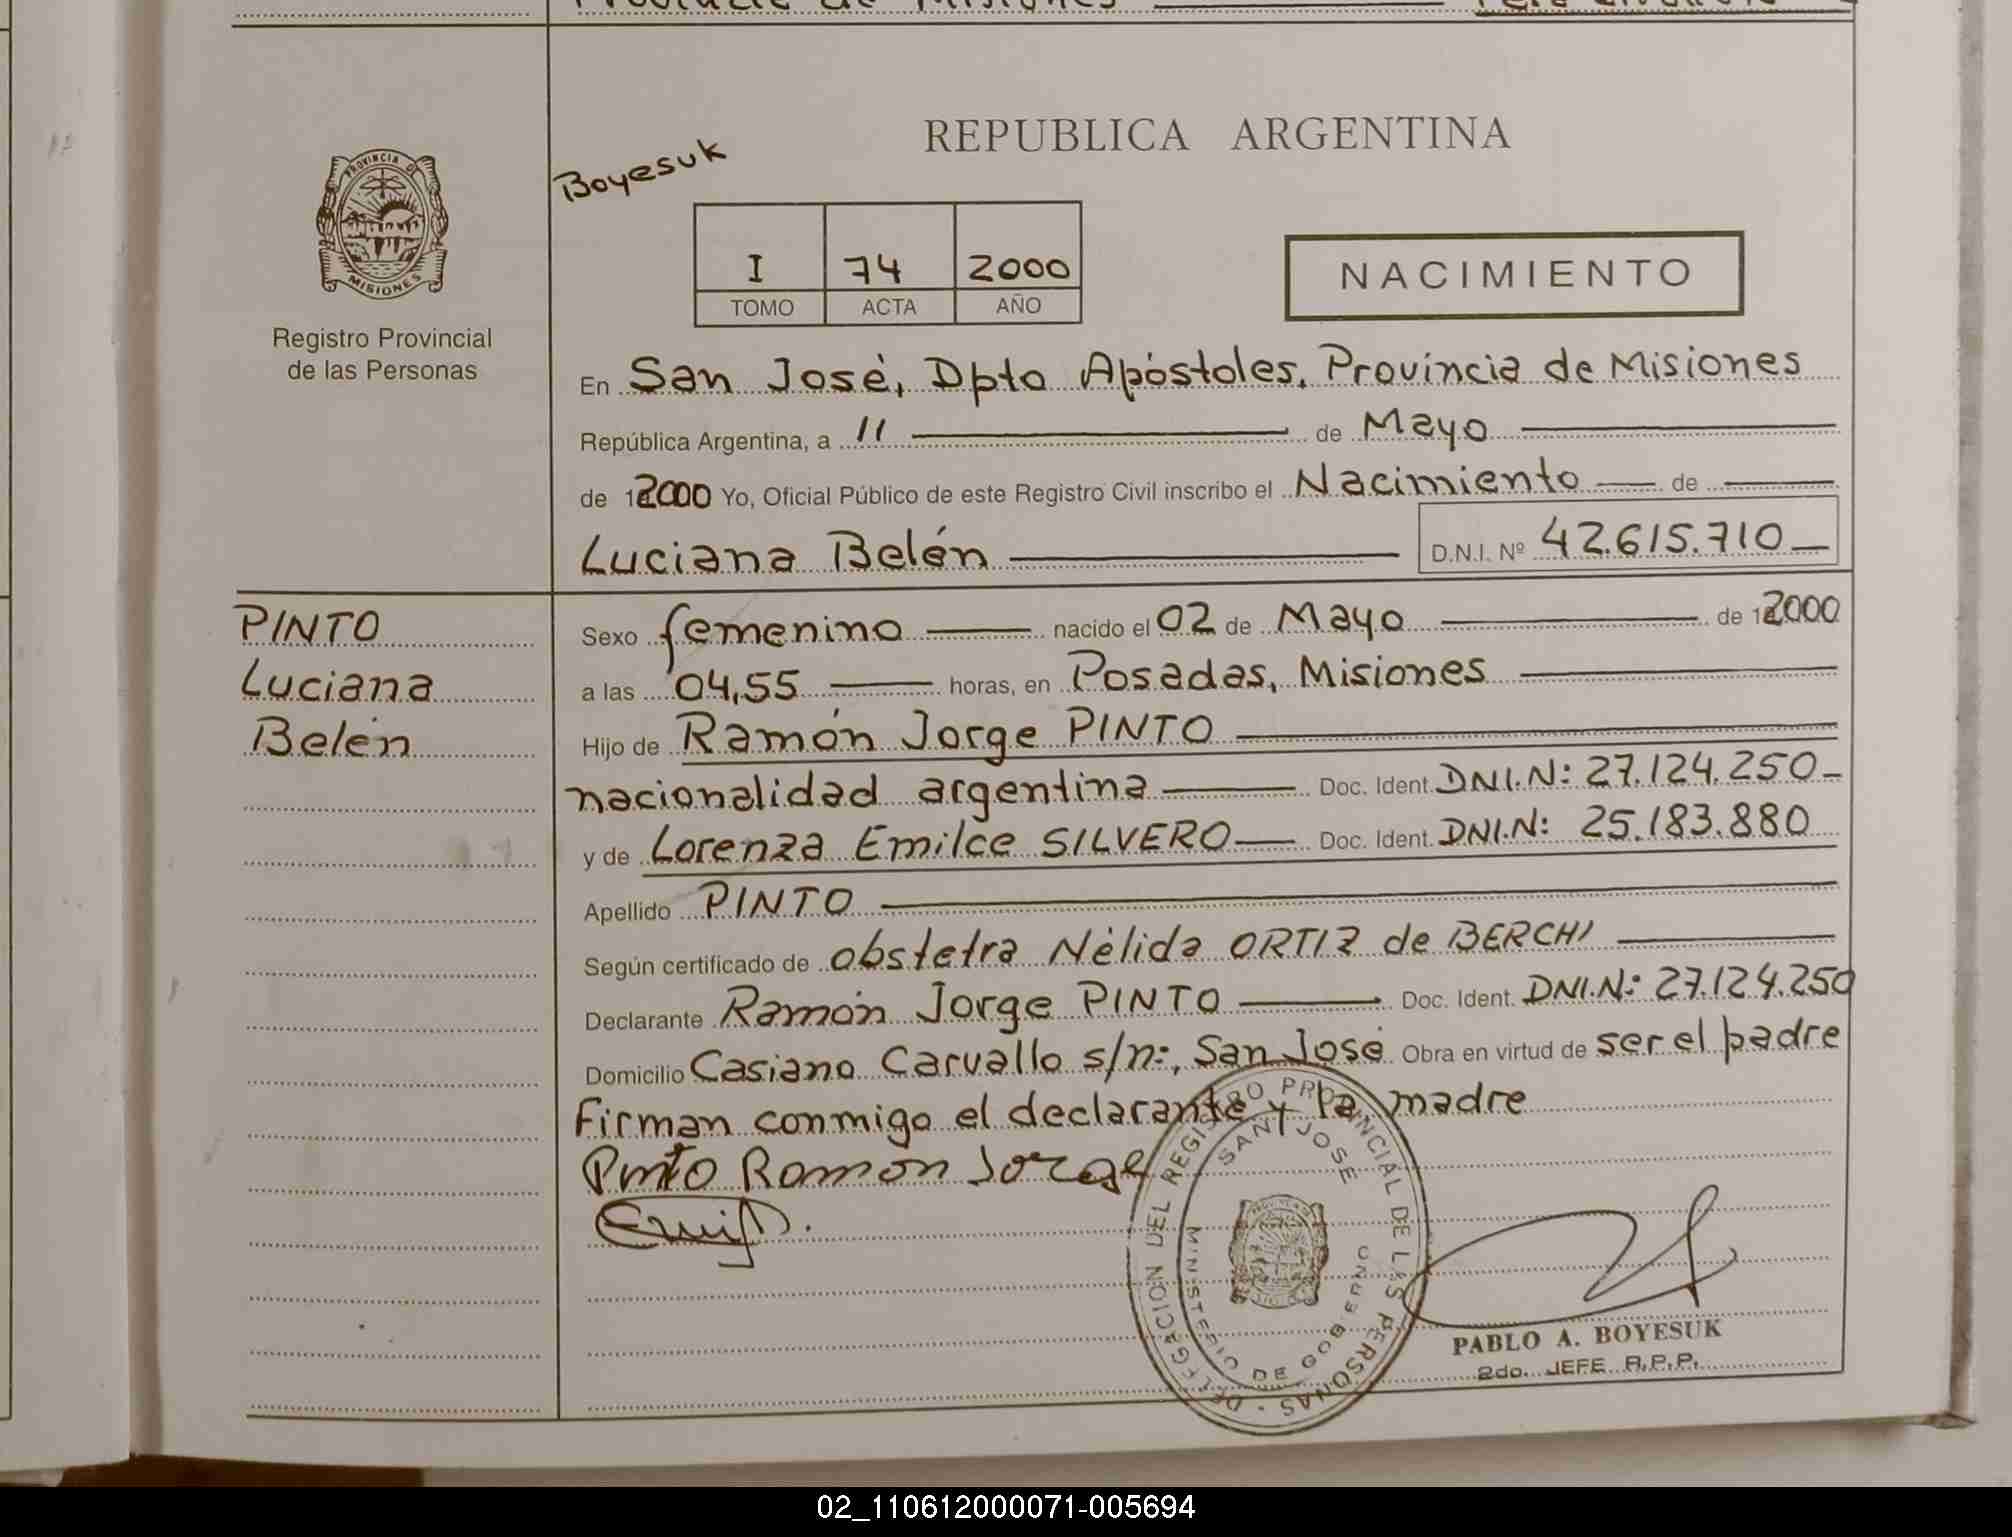 Provincia de Misiones
PROVINCIA DE
MISIONES
Registro Provincial
de las Personas
Boyesuk
REPUBLICA ARGENTINA
I 74 2000
TOMO ACTA AÑO
NACIMIENTO
En San José, Dpto Apóstoles, Provincia de Misiones
República Argentina, a 11 de Mayo
de 2000 Yo, Oficial Público de este Registro Civil inscribo el Nacimiento de
Luciana Belén D.N.I. Nº 42.615.710
PINTO
Luciana
Belén
Sexo femenino nacido el 02 de Mayo de 2000
a las 04,55 horas, en Posadas, Misiones
Hijo de Ramón Jorge PINTO
nacionalidad argentina Doc. Ident. DNI.N: 27.124.250
y de Lorenza Emilce SILVERO Doc. Ident. DNI.N: 25.183.880
Apellido PINTO
Según certificado de obstetra Nélida ORTIZ de BERCHI
Declarante Ramón Jorge PINTO Doc. Ident. DNI.N: 27.124.250
Domicilio Casiano Carvallo s/n:, San José Obra en virtud de ser el padre
Firman conmigo el declarante y la madre
Pinto Ramon Jorge
DELEGACION DEL REGISTRO PROVINCIAL DE LAS PERSONAS
SAN JOSE
MINISTERIO DE GOBIERNO
PABLO A. BOYESUK
2do. JEFE R.P.P.
02_110612000071-005694